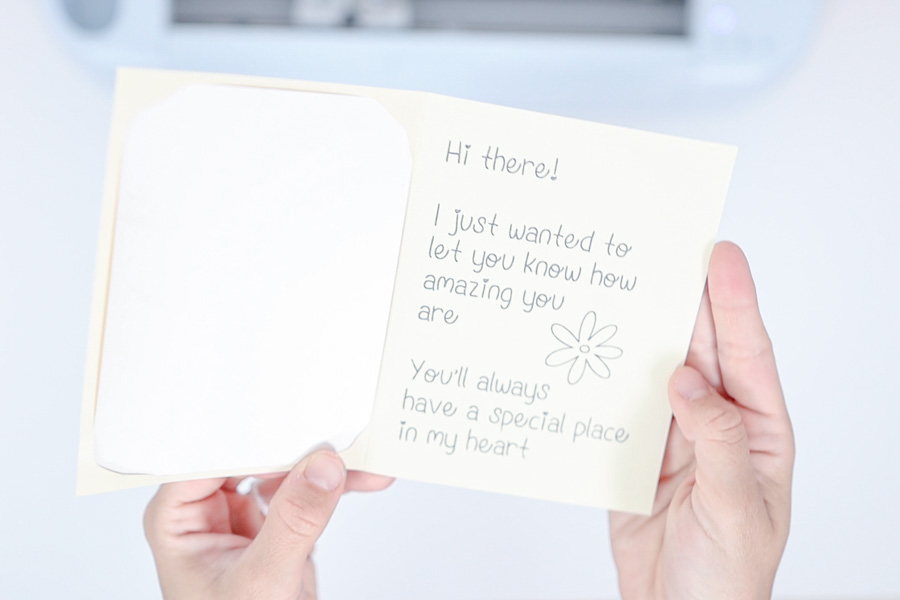 Hi there!
I just wanted to
let you know how
amazing you
are
You'll always
have a special place
in my heart